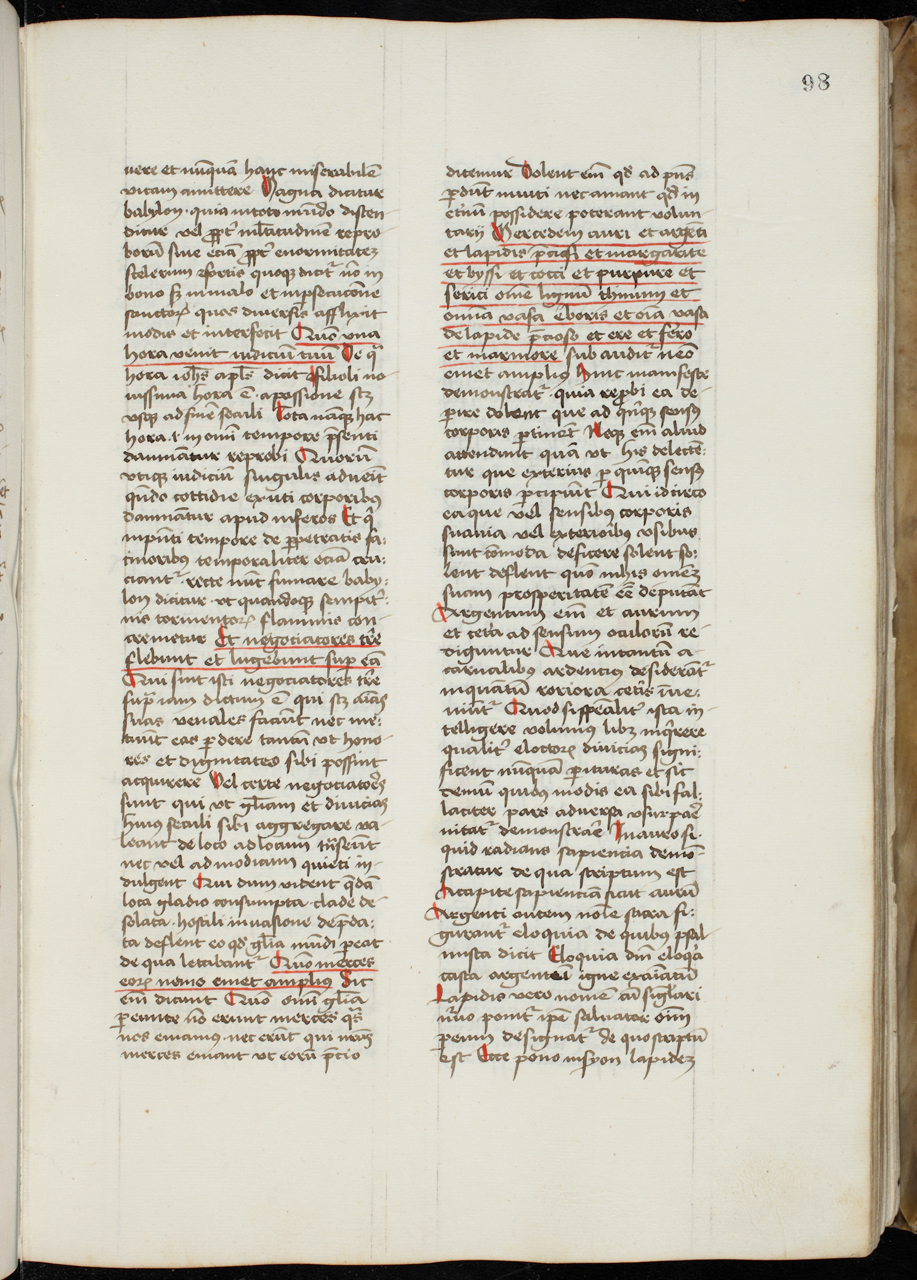 98
uere et nūquā hanc miserabilē
vitam amittere Magna dicitur
babylon · quia in toto mūdo disten-
ditur vel ꝓpt̄ mltitudinē repro
borū siue eciā ꝓpt̄ enormitatez
scelerum Fortis quoqꝫ dicit̄ nō in
bono sꝫ in malo et in psecucōne
sanctoꝝ quos diuersis afflixit
modis et interfecit Quō vna
hora venit iudiciū tuū De qͣ
hora ioh̄s apl̄s dicit Filioli no
uissima hora ē · a passione scꝫ
vsqꝫ ad finē seculi Tota nāqꝫ hac
hora · i · in omī tempore p̄senti
damnātur reprobi Quorū
vtiqꝫ iudiciū singulis adueīt
qn̄do cottidie exuti corporibꝰ
damnātur apud inferos Et qͥ
in pn̄ti tempore de ꝑpetratis fa-
cinoribus temporaliter eciā cru-
ciant̄ · recte nūc fumare baby-
lon dicitur · vt quandoqꝫ sempit̄-
nis tormentoꝝ flammis con-
cremetur Et negociatores t̄re
flebunt et lugebunt suꝑ eā
Qui sint isti negociatores t̄re
supͣ iam dictum ē qui scꝫ aīas
suas venales faciūt nec me-
tuūt eas ꝑdere tantū vt hono-
res et dignitates sibi possint
acquirere Vel certe negociatores
sunt qui vt gl̄iam et diuicias
huiꝰ seculi sibi aggregare va-
leant de loco ad locum trāseūt
nec vel ad modicum quieti in-
dulgent Qui dum vident qͣdā
loca gladio consumpta · clade de-
solata · hostili inuasione dep̄da-
ta deflent eo qd̄ gl̄ia mūdi pereat
de qua letabant̄ Quō merces
eoꝝ nemo emet amplius Sic
em̄ dicunt Quō omī gl̄ia
pereunte nō erunt merces qͣs
nos emamus nec erūt qui nr̄as
merces emant vt eorū p̄cio
ditemur Dolent em̄ qd̄ ad pn̄s
ꝑdūt inuiti nec amant qd̄ in
et̄nū possidere poterant volun-
tarij Mercedem auri et argēti
et lapidis p̄ciosi et margarite
et byssi et cocci et purpure et
serici omē lignū thinum et
omnia vasa eboris et oīa vasa
de lapide p̄cioso et ere et ferro
et marmore sub audit̄ nemo
emet amplius Hinc manifeste
demonstrat̄ quia reprobi ea de-
ꝑire dolent que ad qͥnqꝫ sensꝰ
corporis ꝑtinēt Neqꝫ em̄ aliud
attendunt quā vt his delecten-
tur que exterius ꝑ quīqꝫ sensꝰ
corporis ꝑcipiūt Qui idcirco
ea que vel sensibus corporis
suauia vel exterioribꝰ vsibus
sunt cōmoda deficere solent so-
lent deflent quō in his omnez
suam prosperitatē eē deputāt
Argentum em̄ et aurum
et cet̄a ad sensum oculorū re-
diguntur Que in tantū a
carnalibus ardentius desiderāt̄
in quātū rariora cet̄is īue-
niūt̄ Quod si spealit̄ ista in-
telligere volumus libꝫ inqͥrere
qualit̄ electoꝝ diuicias signi-
ficent nūquā ꝑituras et sic
demū quibꝰ modis ea sibi fal-
laciter pars aduersa vsurpare
nitat̄ demonstrare In auro si-
quid radians sapiencia demō-
stratur de qua scriptum est
Accipite sapienciā sicut aurū
Argenti autem noīe sacra fi-
gurant̄ eloquia de quibus psal-
mista dicit Eloquia dn̄i eloqͥa
casta argentū igne exaīatū
Lapidis vero nomē cū singl̄ari
nūero ponit̄ ipe saluator oīm
ꝑenim designat̄ de quo scriptū
est Ecce pono in syon lapidez